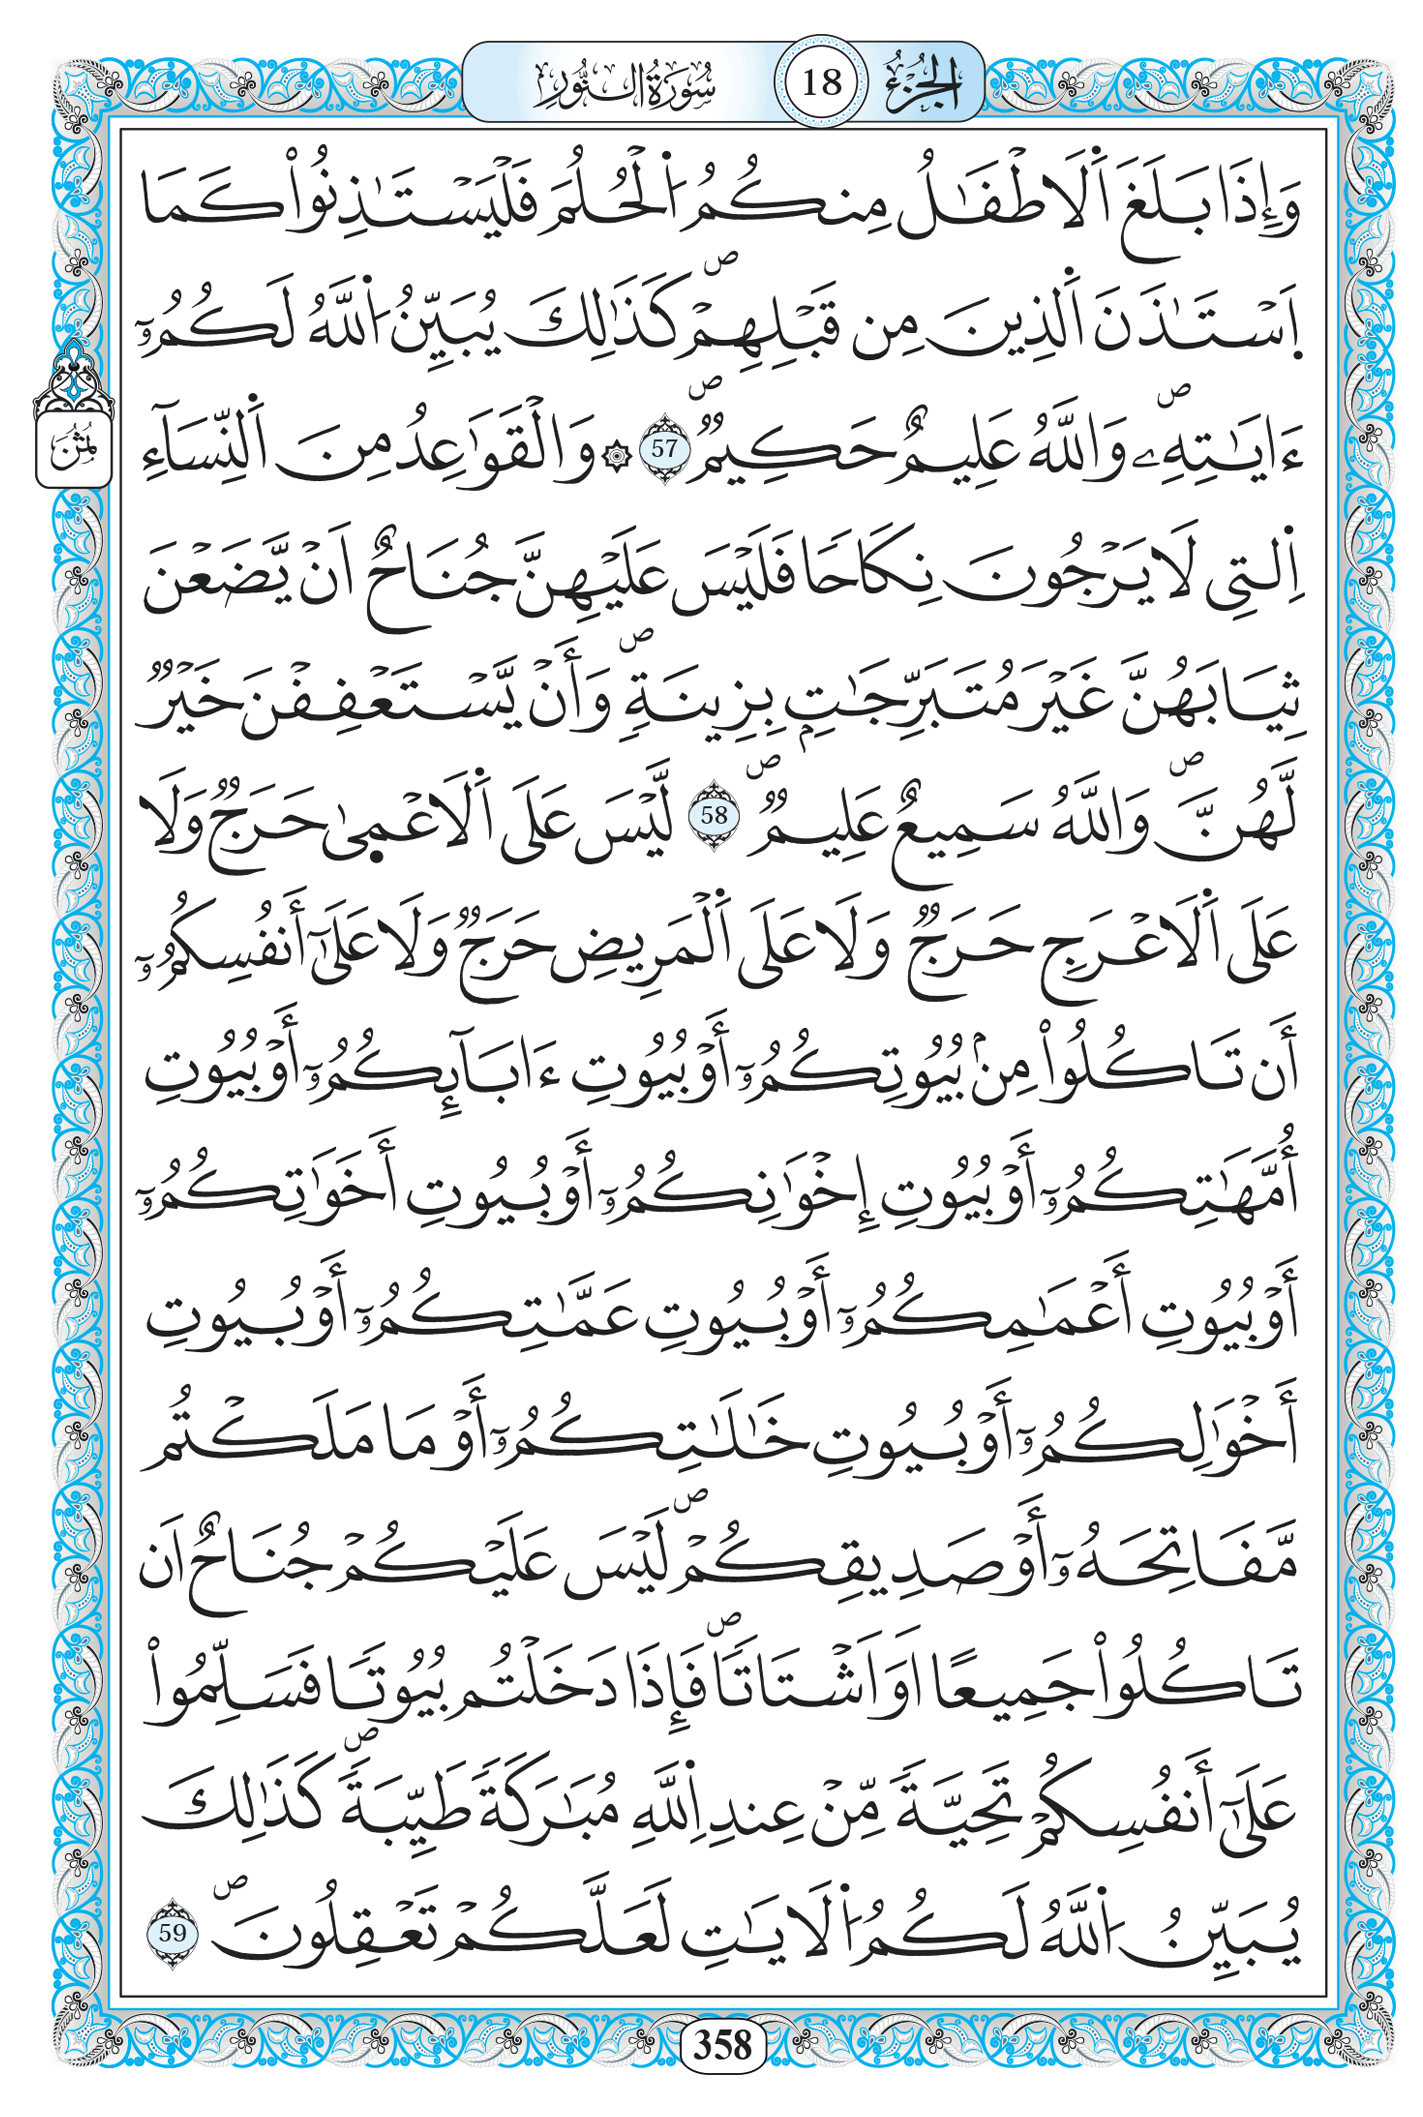 الجُزْءُ 18 سُورَةُ النُّورِ
وَإِذَا بَلَغَ اَ۬لَاطْفَٰلُ مِنكُمُ اُ۬لْحُلُمَ فَلْيَسْتَٰذِنُواْ كَمَا
اَ۪سْتَٰذَنَ اَ۬لذِينَ مِن قَبْلِهِمْۖ كَذَٰلِكَ يُبَيِّنُ اُ۬للَّهُ لَكُمُۥٓ
ءَايَٰتِهِۦۖ وَاللَّهُ عَلِيمٌ حَكِيمٌۖ 57 ۞ وَالْقَوَٰعِدُ مِنَ اَ۬لنِّسَآءِ
اِ۬لتِي لَا يَرْجُونَ نِكَاحاٗ فَلَيْسَ عَلَيْهِنَّ جُنَاحٌ اَنْ يَّضَعْنَ
ثِيَابَهُنَّ غَيْرَ مُتَبَرِّجَٰتِۢ بِزِينَةٖۖ وَأَنْ يَّسْتَعْفِفْنَ خَيْرٞ
لَّهُنَّۖ وَاللَّهُ سَمِيعٌ عَلِيمٞۖ 58 لَّيْسَ عَلَى اَ۬لَاعْم۪ىٰ حَرَجٞ وَلَا
عَلَى اَ۬لَاعْرَجِ حَرَجٞ وَلَا عَلَى اَ۬لْمَرِيضِ حَرَجٞ وَلَا عَلَىٰٓ أَنفُسِكُمُۥٓ
أَن تَاكُلُواْ مِنۢ بُيُوتِكُمُۥٓ أَوْ بُيُوتِ ءَابَآئِكُمُۥٓ أَوْ بُيُوتِ
أُمَّهَٰتِكُمُۥٓ أَوْ بُيُوتِ إِخْوَٰنِكُمُۥٓ أَوْ بُيُوتِ أَخَوَٰتِكُمُۥٓ
أَوْ بُيُوتِ أَعْمَٰمِكُمُۥٓ أَوْ بُيُوتِ عَمَّٰتِكُمُۥٓ أَوْ بُيُوتِ
أَخْوَٰلِكُمُۥٓ أَوْ بُيُوتِ خَٰلَٰتِكُمُۥٓ أَوْ مَا مَلَكْتُم
مَّفَاتِحَهُۥٓ أَوْ صَدِيقِكُمْۖ لَيْسَ عَلَيْكُمْ جُنَاحٌ اَن
تَاكُلُواْ جَمِيعاً اَوَ اَشْتَاتاٗۖ فَإِذَا دَخَلْتُم بُيُوتاٗ فَسَلِّمُواْ
عَلَىٰٓ أَنفُسِكُمْ تَحِيَّةٗ مِّنْ عِندِ اِ۬للَّهِ مُبَٰرَكَةٗ طَيِّبَةٗۖ كَذَٰلِكَ
يُبَيِّنُ اُ۬للَّهُ لَكُمُ اُ۬لَايَٰتِ لَعَلَّكُمْ تَعْقِلُونَۖ 59
ثُمُن
358